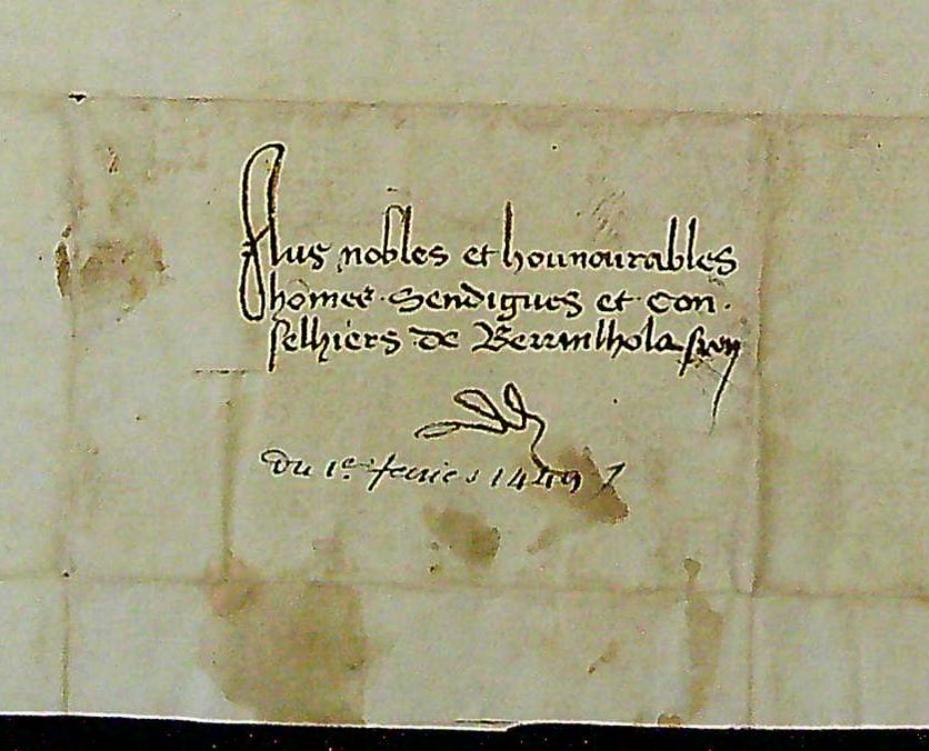 Plus nobles et hounourables
homes · Sendigues et con ·
selhiers de
du 1e feurier 1449